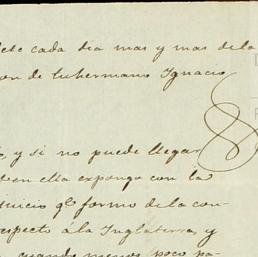 cada dia mas y mas de la
on de tu hermano Ignacio
y si no puede llegar
en ella expongo con la
juicio qe formo de la con-
respecto á la Inglaterra, y
cuando menos poco pa-